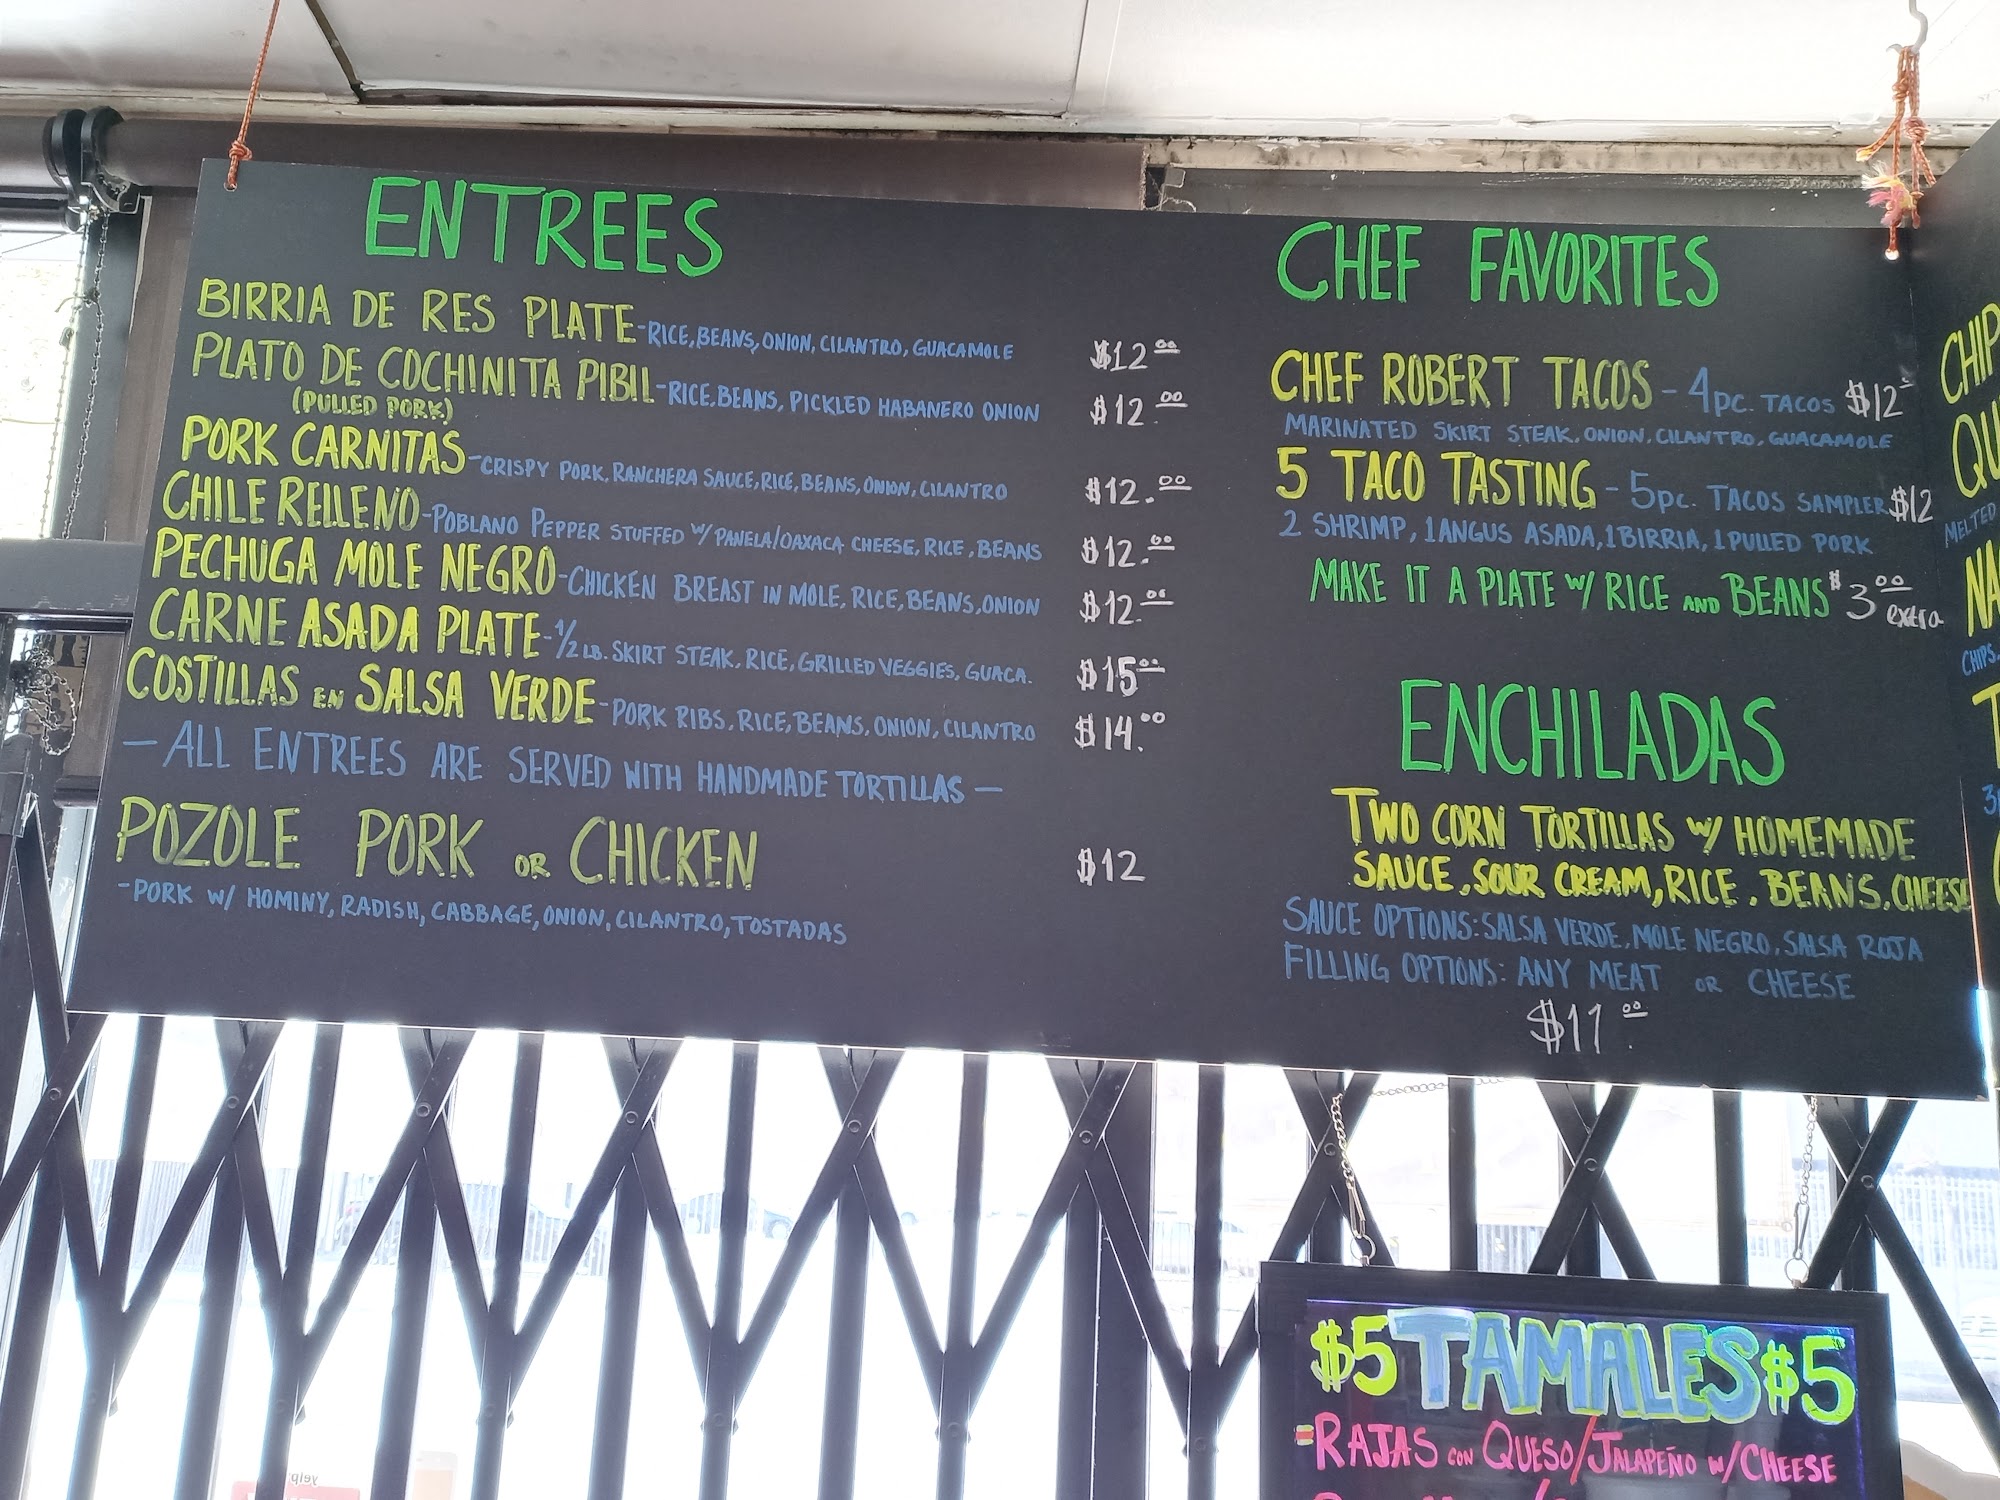 ENTREES
BIRRIA DE RES PLATE-RICE, BEANS, ONION, CILANTRO, GUACAMOLE $12.00
PLATO DE COCHINITA PIBIL-RICE, BEANS, PICKLED HABANERO ONION $12.00
(PULLED PORK)
PORK CARNITAS-CRISPY PORK, RANCHERA SAUCE, RICE, BEANS, ONION, CILANTRO $12.00
CHILE RELLENO-POBLANO PEPPER STUFFED W/ PANELA/OAXACA CHEESE, RICE, BEANS $12.00
PECHUGA MOLE NEGRO-CHICKEN BREAST IN MOLE, RICE, BEANS, ONION $12.00
CARNE ASADA PLATE-1/2 LB. SKIRT STEAK, RICE, GRILLED VEGGIES, GUACA. $15.00
COSTILLAS EN SALSA VERDE-PORK RIBS, RICE, BEANS, ONION, CILANTRO $14.00
- ALL ENTREES ARE SERVED WITH HANDMADE TORTILLAS -
POZOLE PORK OR CHICKEN $12
-PORK W/ HOMINY, RADISH, CABBAGE, ONION, CILANTRO, TOSTADAS
CHEF FAVORITES
CHEF ROBERT TACOS - 4PC. TACOS $12
MARINATED SKIRT STEAK, ONION, CILANTRO, GUACAMOLE
5 TACO TASTING - 5PC. TACOS SAMPLER $12
2 SHRIMP, 1 ANGUS ASADA, 1 BIRRIA, 1 PULLED PORK
MAKE IT A PLATE W/ RICE AND BEANS $3.00 extra
ENCHILADAS
TWO CORN TORTILLAS W/ HOMEMADE
SAUCE, SOUR CREAM, RICE, BEANS, CHEESE
SAUCE OPTIONS: SALSA VERDE, MOLE NEGRO, SALSA ROJA
FILLING OPTIONS: ANY MEAT OR CHEESE
$11.00
MELTED
CHIPS
$5 TAMALES $5
=RAJAS CON QUESO/JALAPEÑO W/CHEESE
yelp